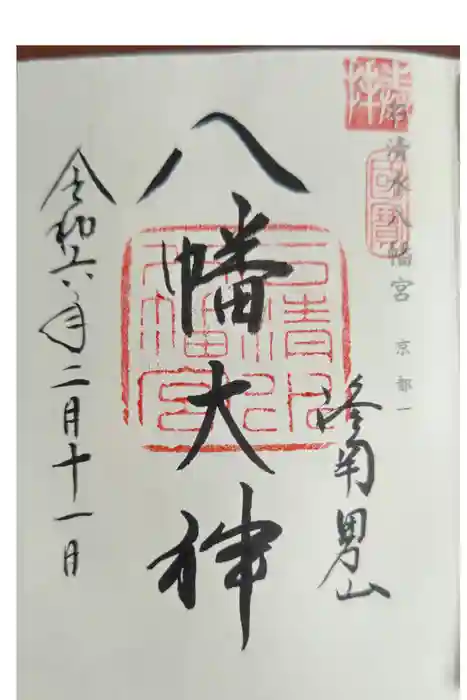 石清水八幡宮 京都一
國寶
洛南男山
八幡大神
石清水八幡宮
令和六年二月十一日